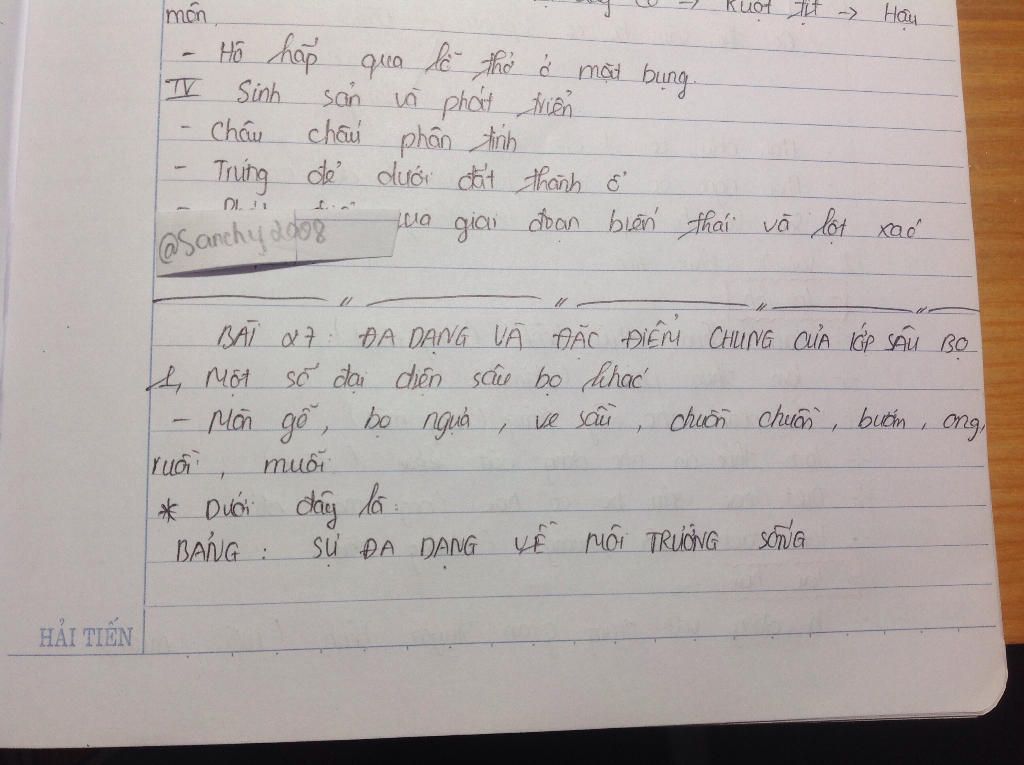 → Ruột tịt → Hậu
môn.
- Hô hấp qua lỗ thở ở mặt bụng.
IV Sinh sản và phát triển
- Châu chấu phân tính
- Trứng đẻ dưới đất thành ổ
qua giai đoạn biến thái và lột xác
@Sanchy2008
BÀI 27: ĐA DẠNG VÀ ĐẶC ĐIỂM CHUNG CỦA LỚP SÂU BỌ
1, Một số đại diện sâu bọ khác
- Mọn gỗ, bọ ngựa, ve sầu, chuồn chuồn, bướm, ong,
ruồi, muỗi.
* Dưới đây là:
BẢNG: SỰ ĐA DẠNG VỀ MÔI TRƯỜNG SỐNG
HẢI TIẾN